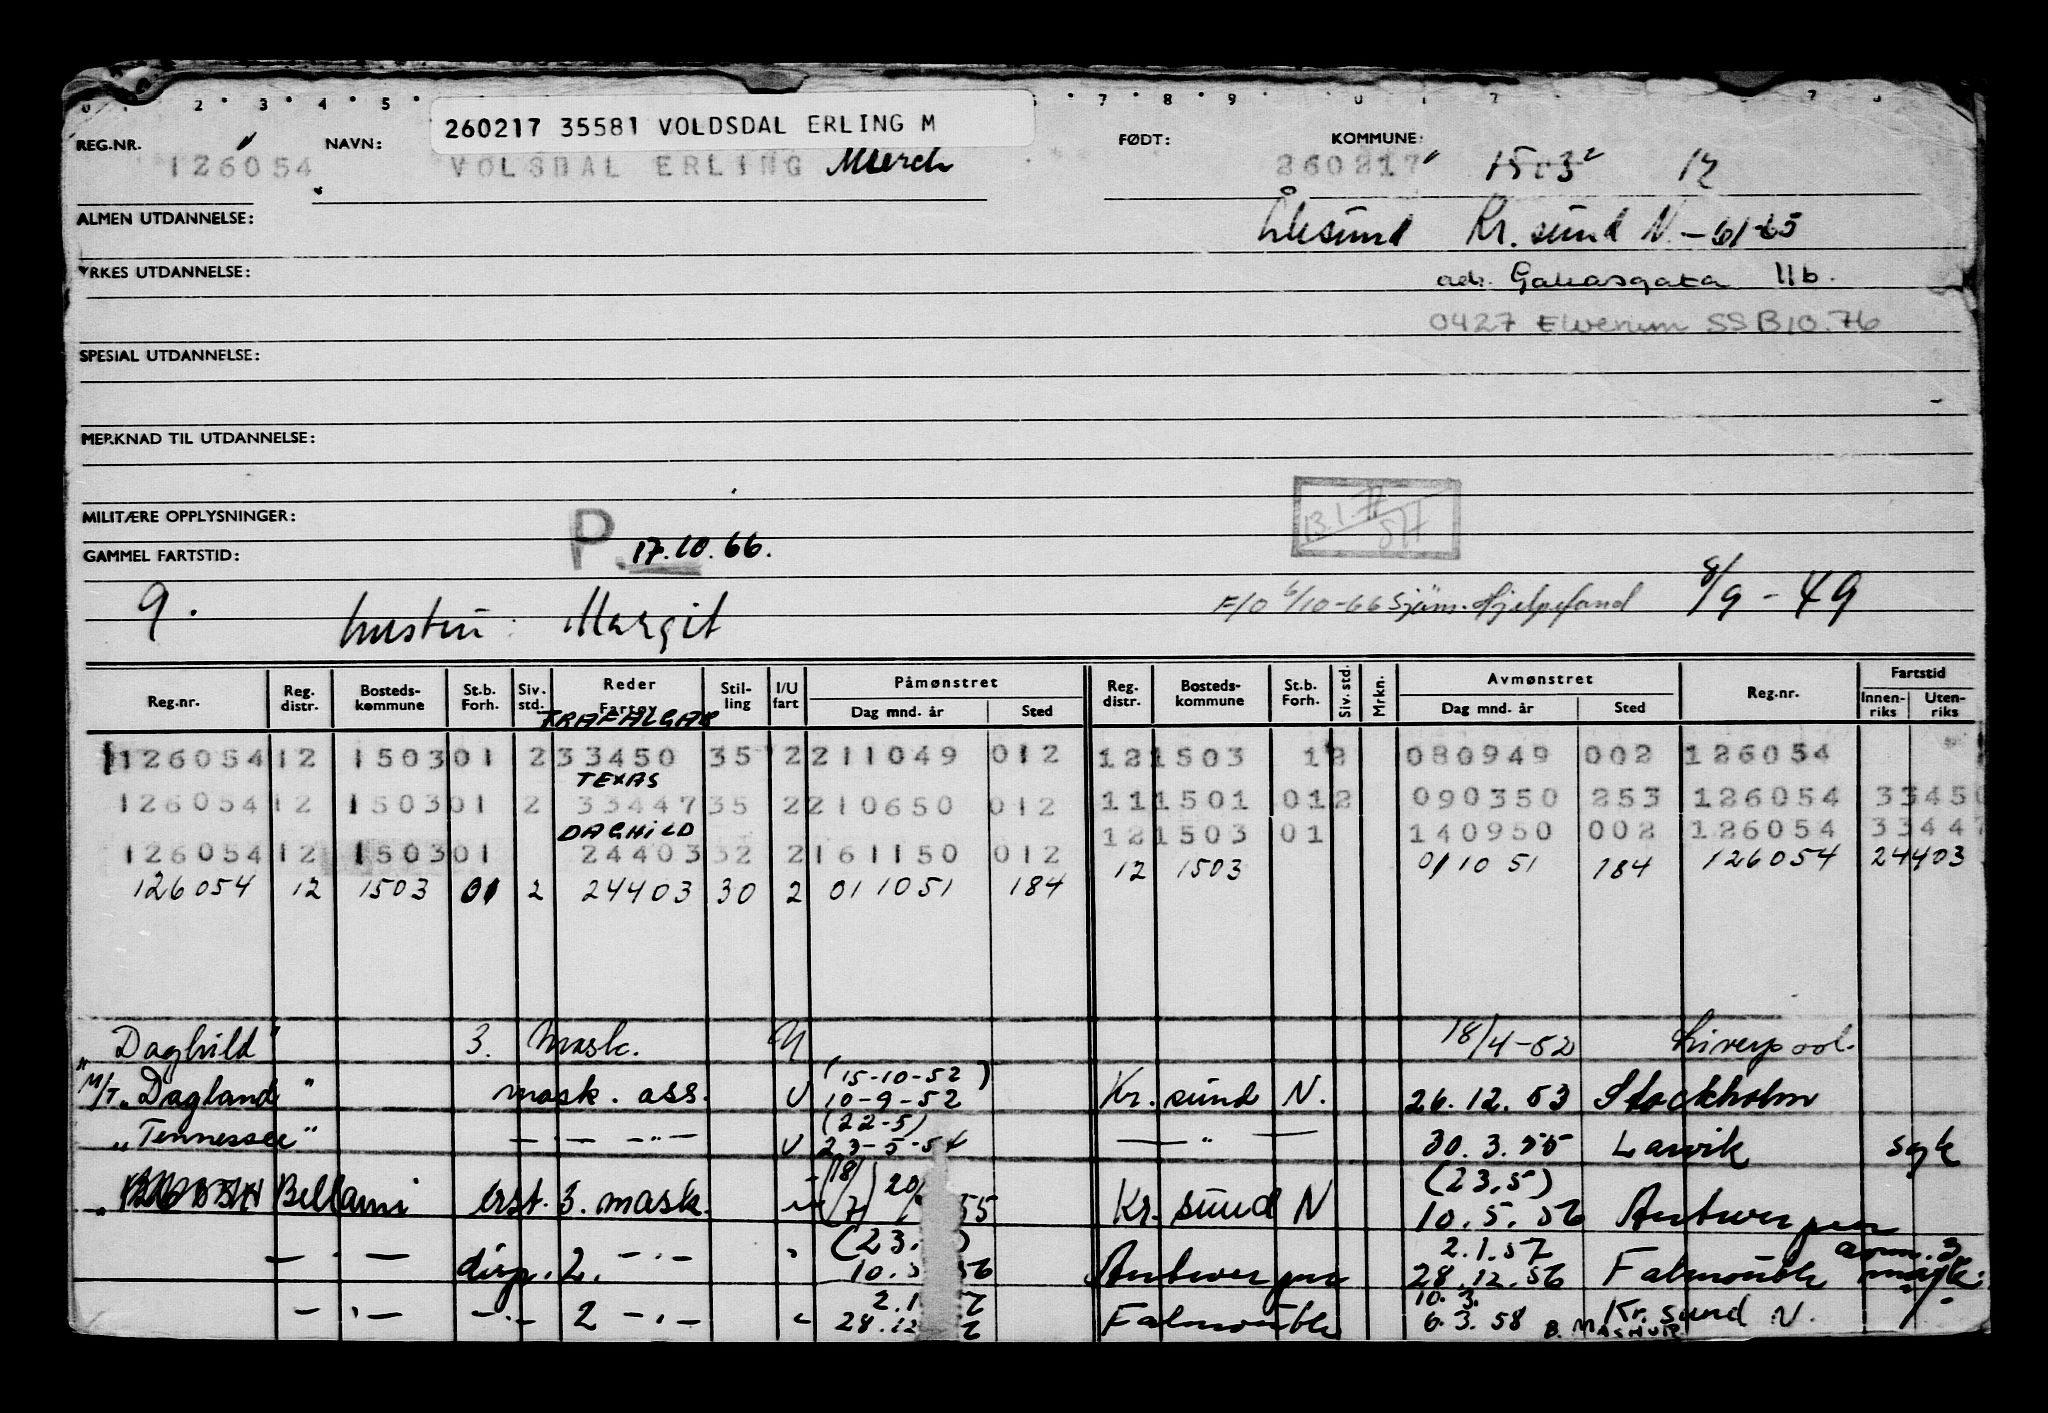 260217 35581 VOLDSDAL ERLING M
REG.NR. NAVN: FØDT: KOMMUNE:
126054 VOLSDAL ERLING 260217 1503 12
ALMEN UTDANNELSE: Kr. sund N. - 61-65
YRKES UTDANNELSE: adr. 11b.
0427 Elverum SSB 10.76
SPESIAL UTDANNELSE:
MERKNAD TIL UTDANNELSE:
MILITÆRE OPPLYSNINGER:
13.1.77
GAMMEL FARTSTID: P. 17.10.66.
9. hustru: Margit 6/10-66 Sjøm. Hjelpefond 8/9-49
Reg.nr. Reg. distr. Bosteds-kommune St.b. Forh. Siv. std. Reder Fartøy Stil-ling I/U fart Påmønstret Dag mnd. år Sted Reg. distr. Bosteds-kommune St.b. Forh. Siv. std. Mrkn. Avmønstret Dag mnd. år Sted Reg.nr. Fartstid Innen-riks Uten-riks
TRAFALGAR
126054 12 1503 01 2 33450 35 2 211049 012 12 1503 1 2 080949 002 126054
TEXAS
126054 12 1503 01 2 33447 35 2 210650 012 11 1501 01 2 090350 253 126054 33450
DAGHILD
12 1503 01 140950 002 126054 33447
126054 12 1503 01 24403 32 2 161150 012
12 1503 011051 184 126054 24403
126054 12 1503 01 2 24403 30 2 011051 184
"Daghild" 3. mask. U 18/4-52 Liverpool.
(15-10-52)
M/T "Dagland" mask. ass. U 10-9-52 Kr. sund N. 26.12.53 Stockholm
(22-5)
"Tennessee" — " — U 23-5-54 — " — 30.3.55 Larvik syk
(23.5)
Bellami erst. 3. mask. 55 Kr. sund N 10.5.56 Antwerpen
(23. ) 2.1.57 avm. 3
— " — disp. 2. — " — 10.5 56 Antwerpen 28.12.56 Falmouth
2.1 10.3.
— " — — " — 2 — " — 28.12 Falmouth 6.3.58 Kr. sund N.